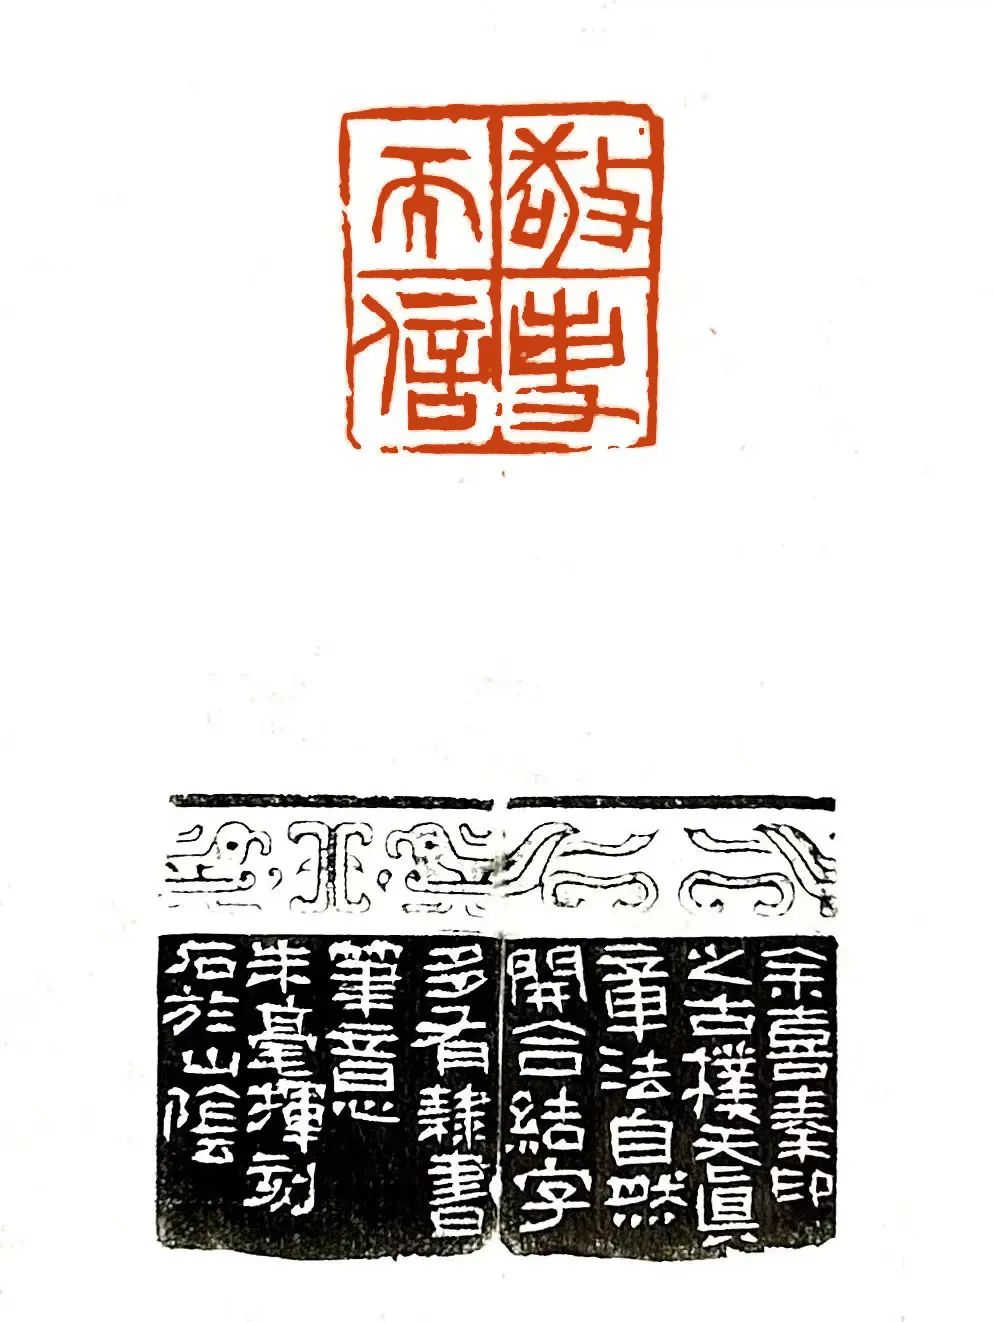 敬事
而信
余喜秦印
之古樸天眞
章法自然
開合結字
多有隸書
筆意
朱毫揮刻
石於山陰